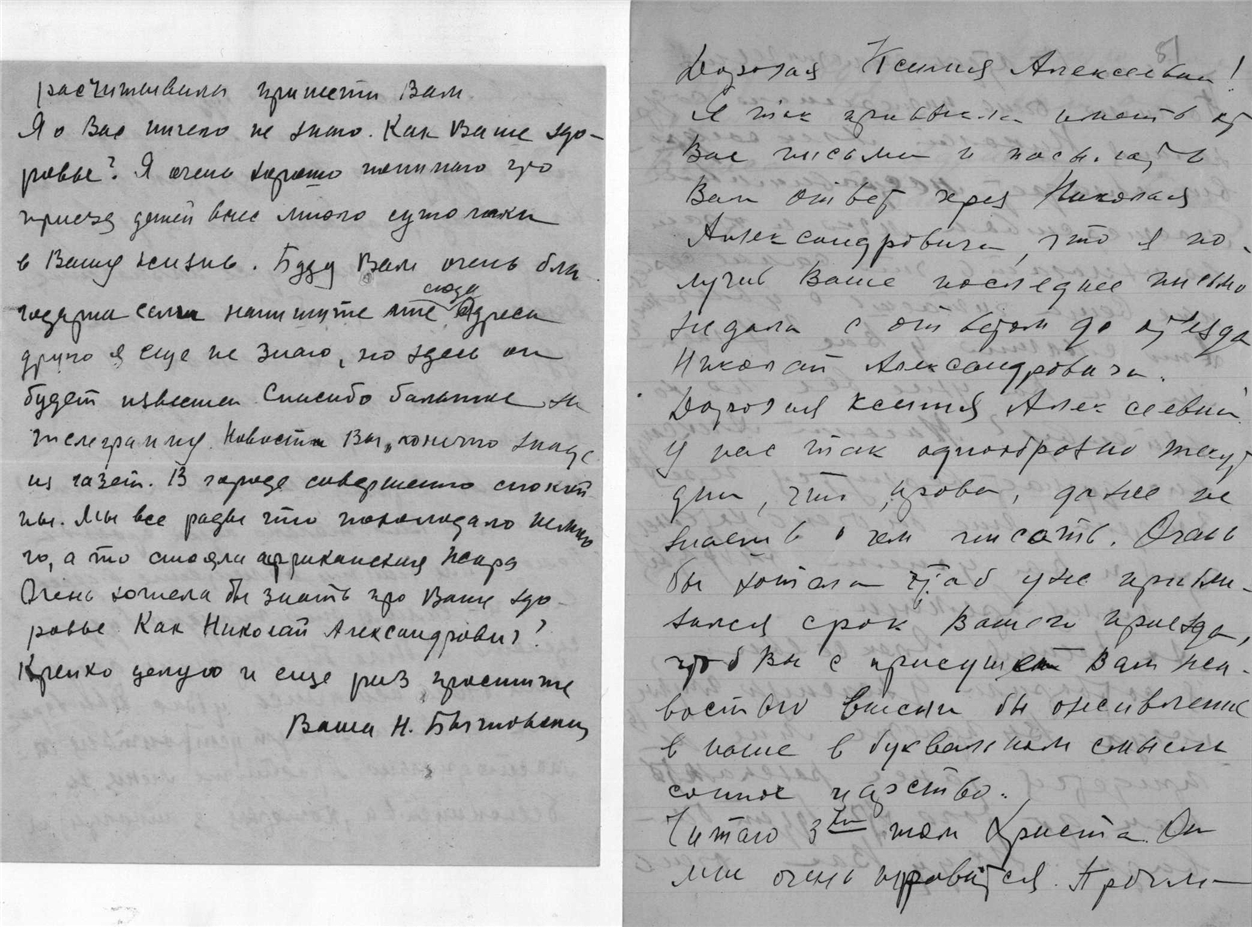 расчитывила принести Вам.
Я о Вас ничего не знаю. Как Ваше здо-
ровье? Я очень хорошо понимаю что
приезд детей внес много сутолоки
в Вашу жизнь. Буду Вам очень бла
годарна если напишите мне сюда Адреса
друго я еще не знаю, но здесь он
будет известен Спасибо большое за
телеграмму. Новости Вы, конечно знаете
из газет. В городе совершенно спокой
но. Мы все рады что похолодало немно
го, а то стояла африканская жара
Очень хотела бы знать про Ваше здо-
ровье Как Николай Александрович?
Крепко целую и еще раз простите
Ваша Н.
81
Дорогая Ксения Алексеевна!
Я так привыкла иметь от
Вас письма и посылать
Вам ответ через Николая
Александровича, что я по-
лучив Ваше последнее письмо
ждала с ответом до отъезда
Николай Александровича.
Дорогая Ксения Алексеевна
у нас так однообразно текут
дни, что, право, даже не
знаешь о чем писать. Очень
бы хотела чтоб уже прибли-
зился срок Вашего приезда,
чтоб Вы с присущей Вам
внесли бы оживление
в наше в буквальном смысле
сонное царство.
Читаю 3й том Он
мне очень нравится.